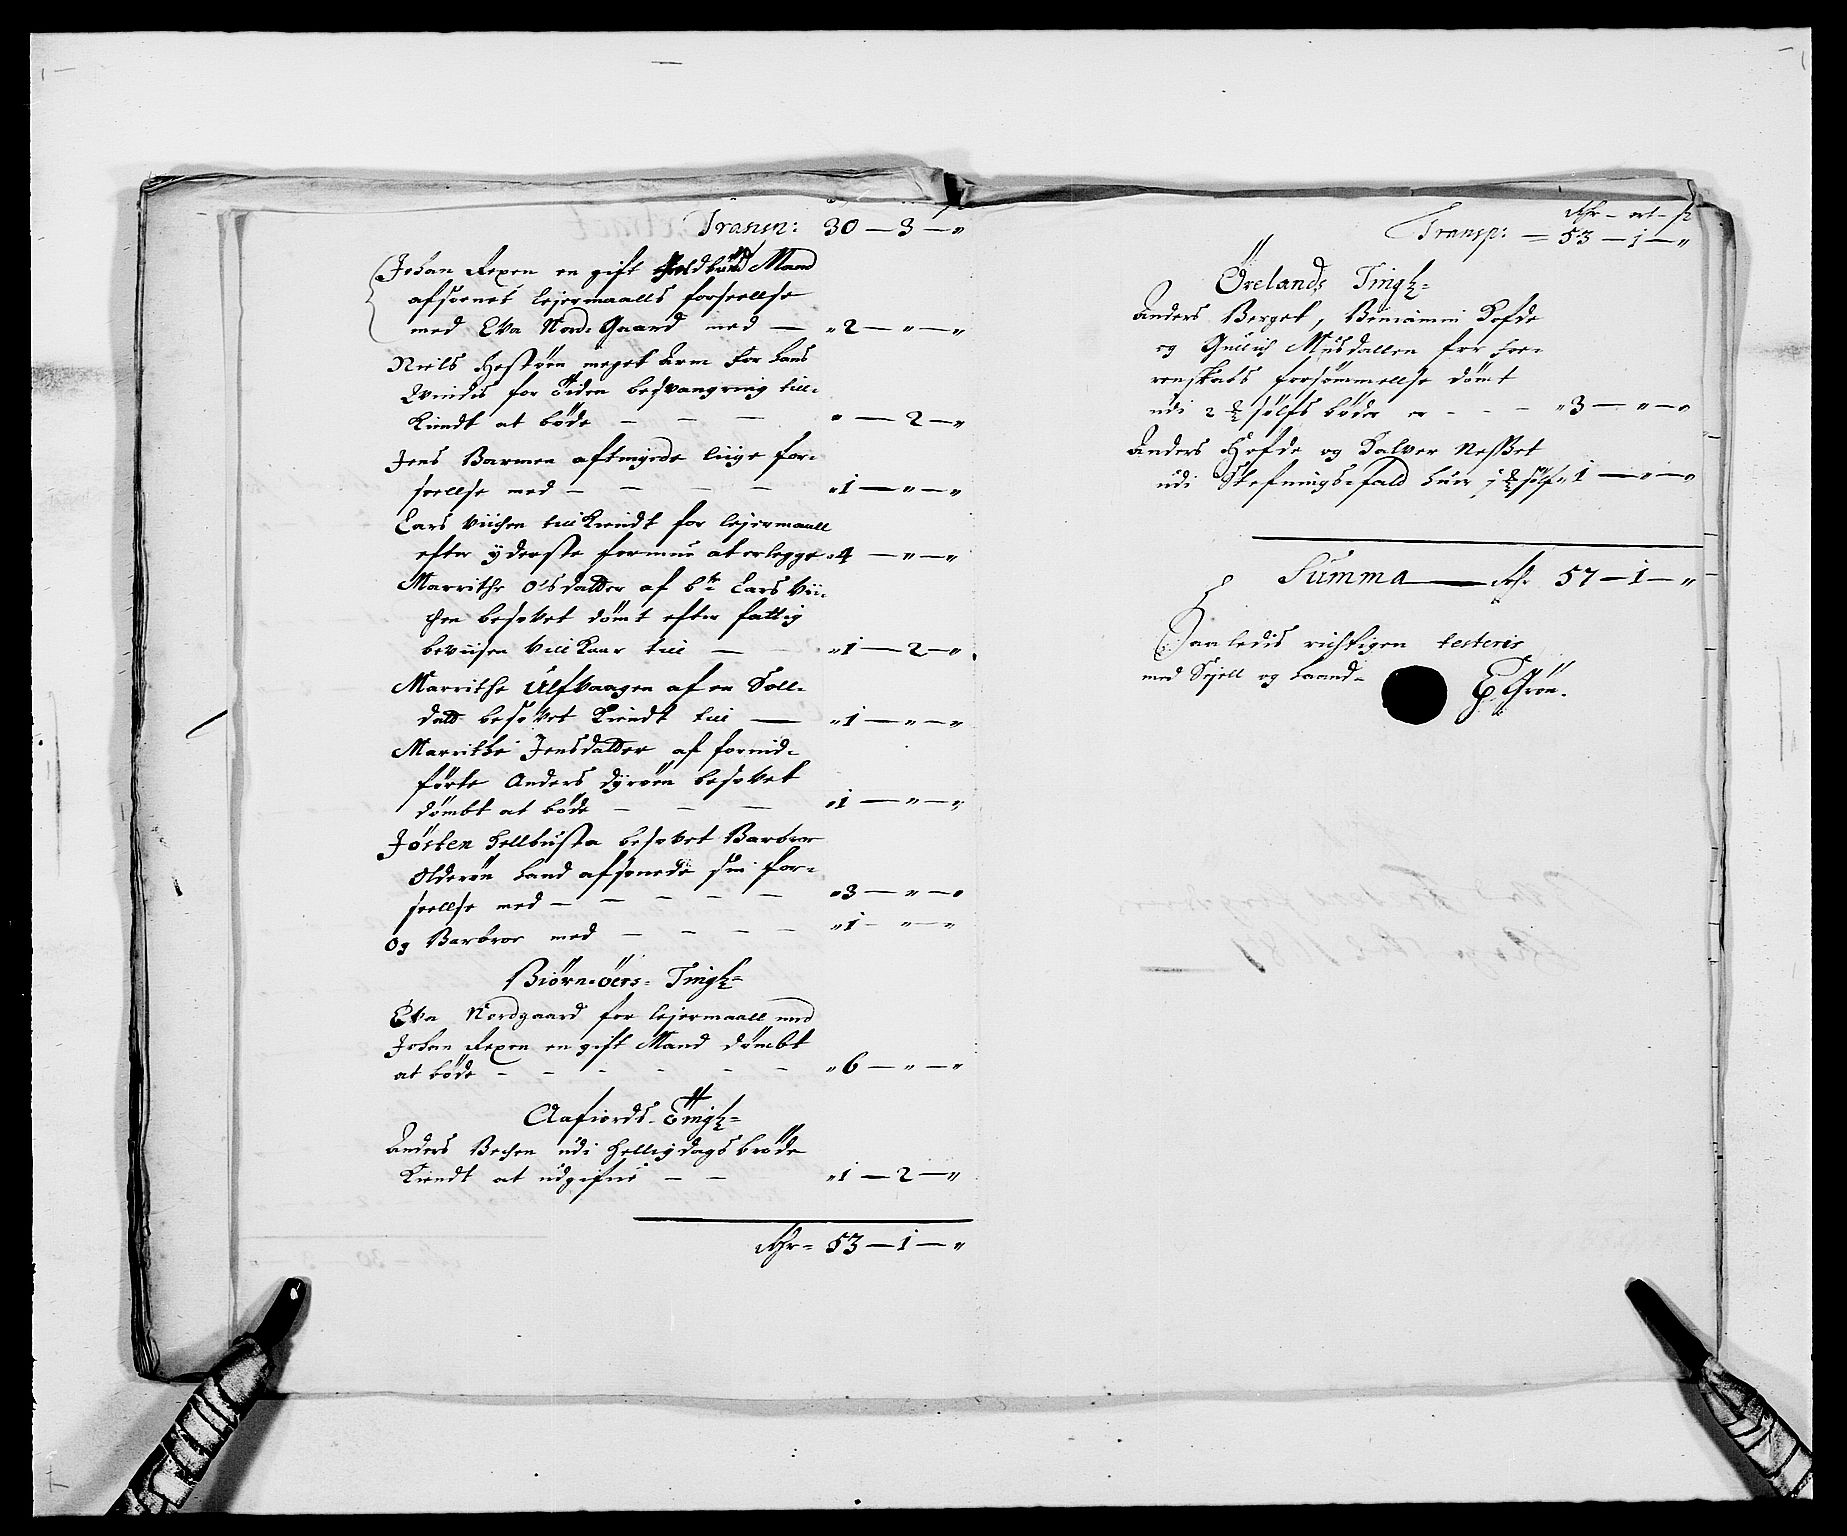 Transp: 30 — 3 — "
Johan Rexen en gift Mand
afsonet lejermaalls forseellse
med Eva Nord: Gaard med — " 2 — " — "
Niels Hestøen meget Arm for hans
Qvindis for tiden besvangring till-
kiendt at bøde — — — " — 2 — "
Jens Barmen aftingede liige for-
seellse med — — — — " 1 — " — "
Lars Viichen till kiendt for lejermaall
efter yderste formue at erlegge " 4 — " — "
Marrithe Olsdatter af bte Lars Vii-
chen besovet dømt efter fattig
beviisen vill kaar till — " 1 — 2 — "
Marrithe Ulfvaagen af en Soll-
datt besovet kiendt till — " 1 — " — "
Marrithe Jensdatter af formid-
førte Anders Dyrøen besovet
dømbt at bøde — — — " 1 — " — "
Josten Hellbusta besovet Barbroe
Olderøn hand afsonede sin for-
seellse med — — — — — " 3 — " — "
Og Barbroe med — — — — " 1 — " — "
Biørn-øers- Tingh=
Eva Nordgaard for lejermaall med
Johan Rexen en gift Mand dømbt
at bøde — — — — — — " 6 — " — "
Aafiords- Tingh=
Anders Bechen udi helligdags brøde
kiendt at udgifve — — " 1 — 2 — "
Rdr= 53 — 1 — "
Rdr — ort — s
Transp: — 53 — 1 — "
Ørelands Tingh=
Anders Berget, Beniamin Hofde
og Gullich Musdallen for
forsømmellse dømt
udi 2 sølfs bøder er — — — " 3 — " — "
Anders Hofde og Halver Nesset
udi Stefnings-fald huer 1 sølf " 1 — " — "
Summa — Rdr 57 — 1 — "
Saaledis richtigen testeris
med Sejell og haand-
E Grøn.